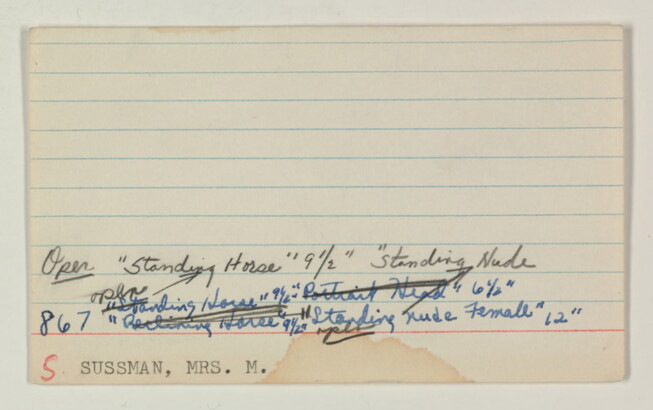 Open "Standing Horse" 9 1/2" "Standing Nude
open
"Standing Horse" 9 1/2" "Portrait Head" 6 1/2"
867 "Reclining Horse" 9 1/2" "Standing nude Female" 12"
open
S. SUSSMAN, MRS. M.